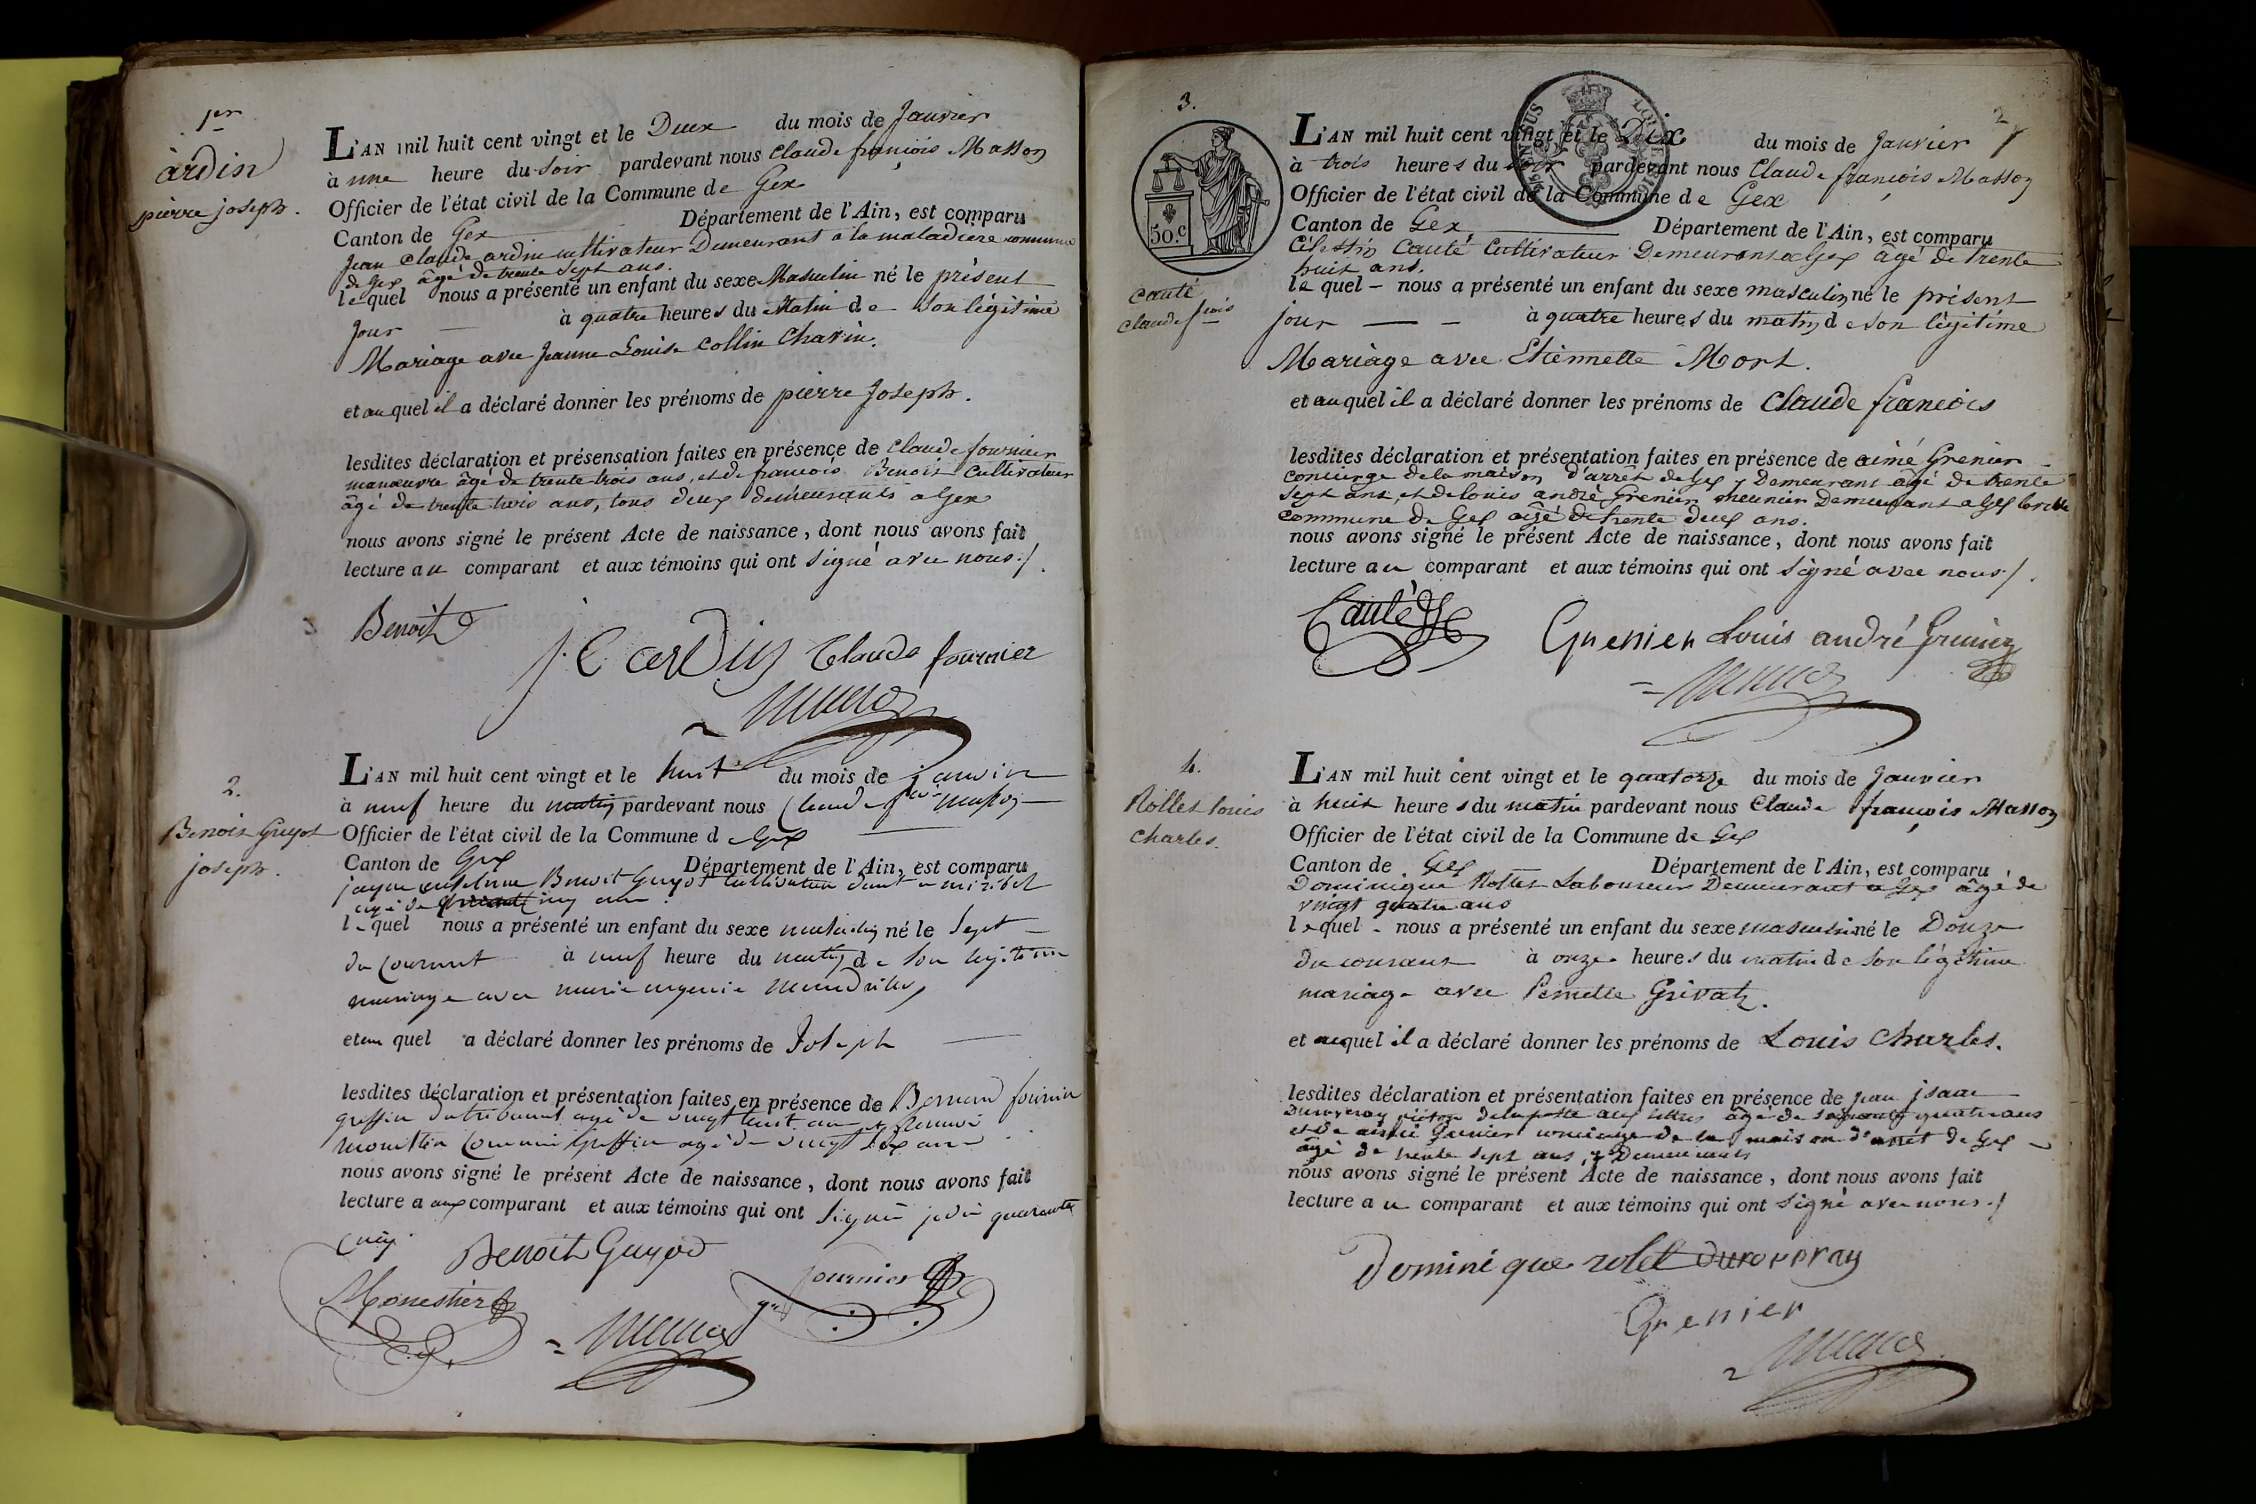 1er
ardin
pierre joseph.
L'AN mil huit cent vingt et le Deux du mois de Janvier
à une heure du soir pardevant nous Claude françois Masson
Officier de l'état civil de la Commune de Gex
Canton de Gex Département de l'Ain, est comparu
Jean Claude ardin cultivateur Demeurant a la maladière commune
de Gex âgé de trente sept ans.
lequel nous a présenté un enfant du sexe Masculin né le présent
jour à quatre heures du Matin de son légitime
Mariage avec Jeanne Louise Collin Charin.
et au quel il a déclaré donner les prénoms de pierre Joseph.
lesdites déclaration et présensation faites en présence de Claude fournier
manœuvre âgé de trente trois ans, et de francois Benoit Cultivateur
âgé de trente trois ans, tous deux demeurants a Gex
nous avons signé le présent Acte de naissance, dont nous avons fait
lecture au comparant et aux témoins qui ont signé avec nous./.
Benoit
j. C ardin Claude fournier
2.
Benoit Guyot
joseph.
L'AN mil huit cent vingt et le huit du mois de janvier
à neuf heure du matin pardevant nous Claude fcois masson
Officier de l'état civil de la Commune de Gex
Canton de Gex Département de l'Ain, est comparu
Benoit Guyot cultivateur
agé de cinq ans
lequel nous a présenté un enfant du sexe masculin né le sept
du courant à neuf heure du matin de son légitime
mariage avec marie
et au quel a déclaré donner les prénoms de Joseph
lesdites déclaration et présentation faites en présence de Bernard fournier
greffier du tribunal agé de vingt huit ans et
monestier commis Greffier agé de vingt six ans
nous avons signé le présent Acte de naissance, dont nous avons fait
lecture a aux comparant et aux témoins qui ont signé
Benoit Guyot
Monestier fournier
3.
50.c
Cauté
claude fcois
2
L'AN mil huit cent vingt et le Dix du mois de Janvier
à trois heures du soir pardevant nous Claude françois Masson
Officier de l'état civil de la Commune de Gex
Canton de Gex, Département de l'Ain, est comparu
Célestin Cauté Cultivateur Demeurant a Gex âgé de trente
huit ans.
le quel nous a présenté un enfant du sexe masculin né le présent
jour à quatre heures du matin de son légitime
Mariage avec Etiennette Mort.
et au quel il a déclaré donner les prénoms de Claude francois
lesdites déclaration et présentation faites en présence de aimé Grenier
concierge de la maison d'arrêt de Gex y Demeurant âgé de trente
sept ans, et de louis andré Grenier meunier Demeurant a Gex la ville
commune de Gex âgé de trente deux ans.
nous avons signé le présent Acte de naissance, dont nous avons fait
lecture au comparant et aux témoins qui ont signé avec nous./.
Cauté
Grenier Louis andré Grenier
4.
Rollet louis
charles.
L'AN mil huit cent vingt et le quatorze du mois de Janvier
à huit heures du matin pardevant nous Claude françois Masson
Officier de l'état civil de la Commune de Gex
Canton de Gex Département de l'Ain, est comparu
Dominique Rollet Laboureur Demeurant a Gex âgé de
vingt quatre ans
lequel nous a présenté un enfant du sexe masculin né le Douze
du courant à onze heures du matin de son légitime
mariage avec Pernette Grivat.
et auquel il a déclaré donner les prénoms de Louis Charles.
lesdites déclaration et présentation faites en présence de jean isaac
Duroveray piéton de la poste aux lettres âgé de soixante quatre ans
et de aimé Grenier concierge de la maison d'arrêt de Gex
âgé de trente sept ans, y Demeurants
nous avons signé le présent Acte de naissance, dont nous avons fait
lecture au comparant et aux témoins qui ont signé avec nous./
dominique rolet duroveray
Grenier